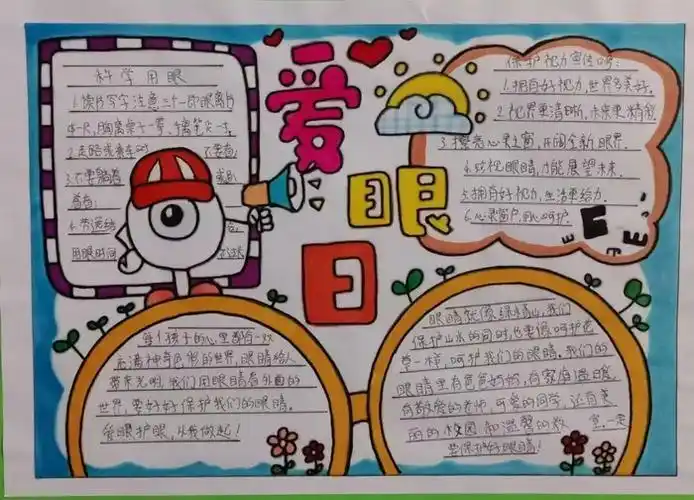 爱
眼
日
科学用眼
1.读书写字注意三个一即眼离书
本一尺,胸离桌子一拳,手离笔尖一寸。
2.走路或乘车时 不要看
3.不要躺着 或趴
着看。
4.
用眼时间
保护视力宣传口号:
1.拥有好视力,世界多美好。
2.视界更清晰,未来更精彩
3.擦亮心灵之窗,开阔全新眼界。
4.珍视眼睛,才能展望未来。
5.拥有好视力,生活更给力。
6.心灵窗户,用心呵护。
E
每个孩子的心里都有一双
充满神奇色彩的世界,眼睛给人
带来光明,我们用眼睛看外面的
世界,要好好保护我们的眼睛。
爱眼护眼,从我做起!
眼睛就像绿水青山,我们
保护山水的同时,也要像呵护花
草一样,呵护我们的眼睛。我们的
眼睛里有爸爸妈妈,有家庭温暖,
有敬爱的老师,可爱的同学,还有美
丽的校园和温馨的教室。一定
要保护好眼睛!